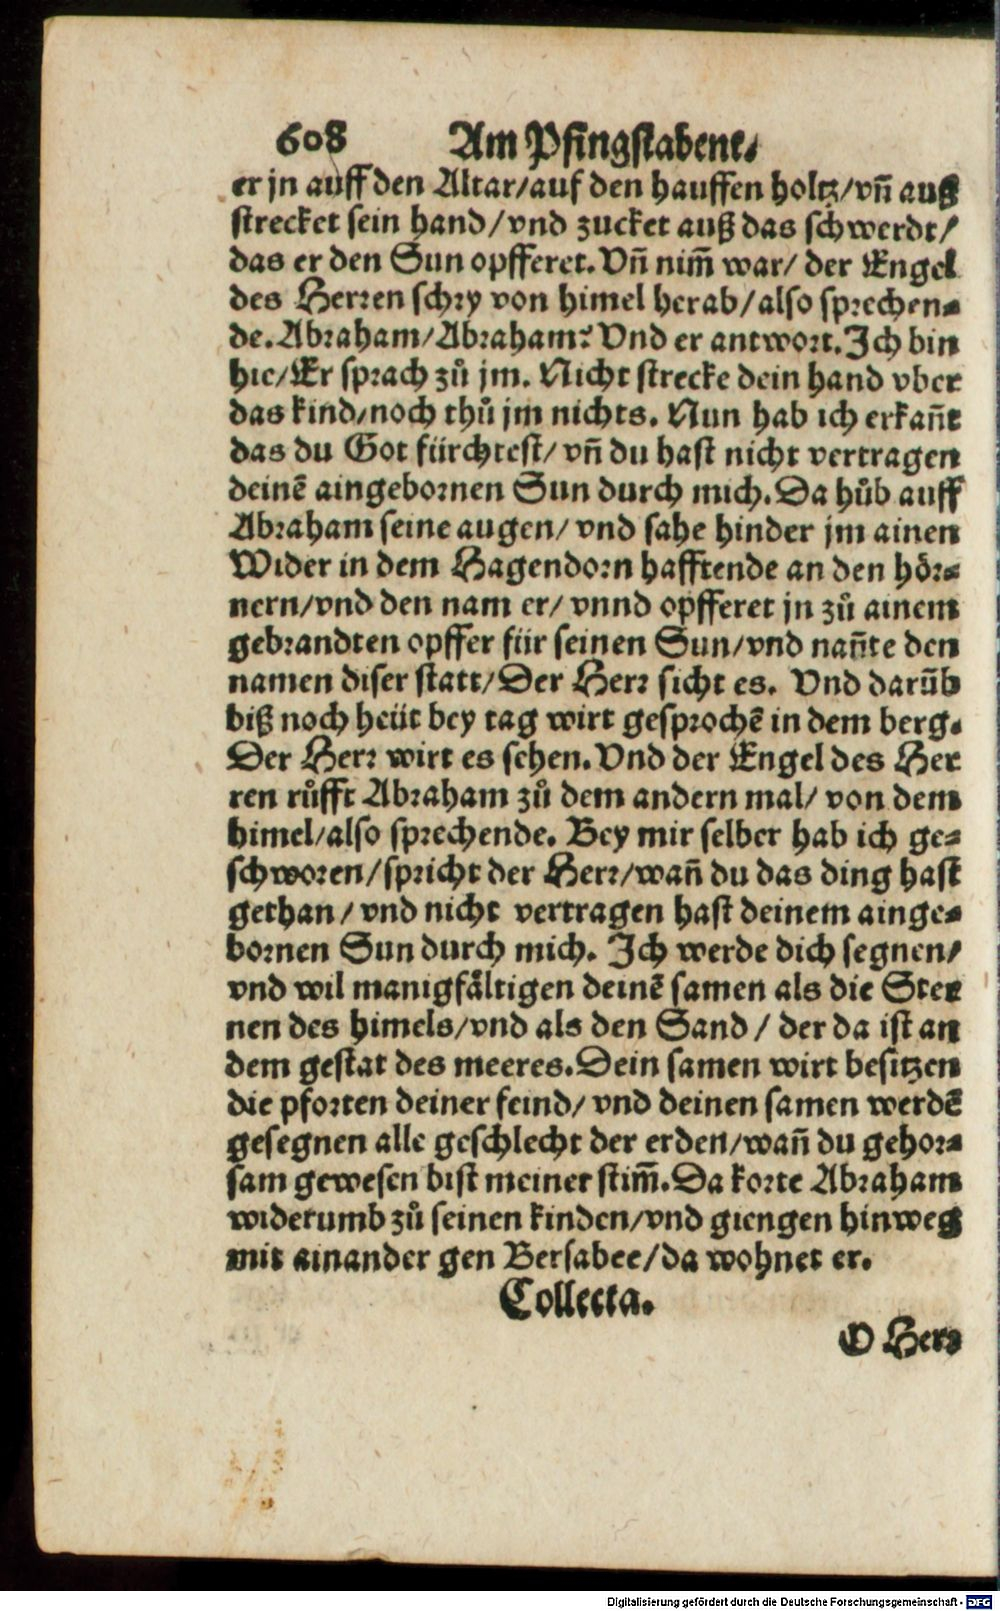 608 Am Pfingstabent.
er jn auff den Altar/auf den hauffen holtz/vñ auß
strecket sein hand/vnd zucket auß das schwerdt/
das er den Sun opfferet. Vñ nim̃ war/ der Engel
des Herren schry von himel herab/also sprechen⸗
de. Abraham/Abraham? Vnd er antwort. Ich bin
hie/Er sprach zů jm. Nicht strecke dein hand vber
das kind/noch thů jm nichts. Nun hab ich erkañt
das du Got fürchtest/ vñ du hast nicht vertragen
deinẽ aingebornen Sun durch mich. Da hůb auff
Abraham seine augen/ vnd sahe hinder jm ainen
Wider in dem Hagendorn hafftende an den hör⸗
nern/vnd den nam er/ vnnd opfferet jn zů ainem
gebrandten opffer für seinen Sun/vnd nañte den
namen diser statt/Der Herr sicht es. Vnd darũb
biß noch heüt bey tag wirt gesprochẽ in dem berg.
Der Herr wirt es sehen. Vnd der Engel des Her
ren růfft Abraham zů dem andern mal/ von dem
himel/also sprechende. Bey mir selber hab ich ge⸗
schworen/spricht der Herr/wañ du das ding hast
gethan/ vnd nicht vertragen hast deinem ainge⸗
bornen Sun durch mich. Ich werde dich segnen/
vnd wil manigfåltigen deinẽ samen als die Ster
nen des himels/vnd als den Sand/ der da ist an
dem gestat des meeres. Dein samen wirt besitzen
die pforten deiner feind/ vnd deinen samen werdẽ
gesegnen alle geschlecht der erden/wañ du gehor⸗
sam gewesen bist meiner stim̃. Da korte Abraham
widerumb zů seinen kinden/vnd giengen hinweg
mit ainander gen Bersabee/da wohnet er.
Collecta.
O Herr
Digitalisierung gefördert durch die Deutsche Forschungsgemeinschaft - DFG